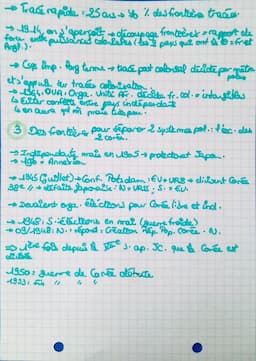 → Tracé rapide : 25 ans → 70 % des frontières tracées
→ 1914, on s'aperçoit → découpage frontières = rapport de
force entre puissances coloniales (les 2 pays qui ont le + : Fr et
Angl.)
→ Csq Afrique : long terme → tracé post colonial décidé par métropoles
et s'appuie sur tracés coloniaux
→ 1964, OUA : Orga. Unité Af. décide fr. col. = intangibles
↳ Éviter conflits entre pays indépendants
↳ en aura qd m mais
3 Des frontières pour séparer 2 systèmes pol. : l'ex. des
2 Corée.
→ Indépendante mais en 1905 → protectorat Japon.
→ 1910 = Annexion
→ 1945 (juillet) → Conf. Potsdam : EU + URSS → divisent Corée
38e // → défaite japonaise : N = URSS, S = EU.
→ Devaient orga. élections pour Corée libre et ind.
→ 1948 : S : élections en mai (guerre froide)
→ 09/1948 : N. : répond : Création Rép. Pop. Corée. N.
⇒ 1ère fois depuis le VIIe s. ap. JC. que la Corée est
divisée
1950 : guerre de Corée débute
1953 : fin " " "